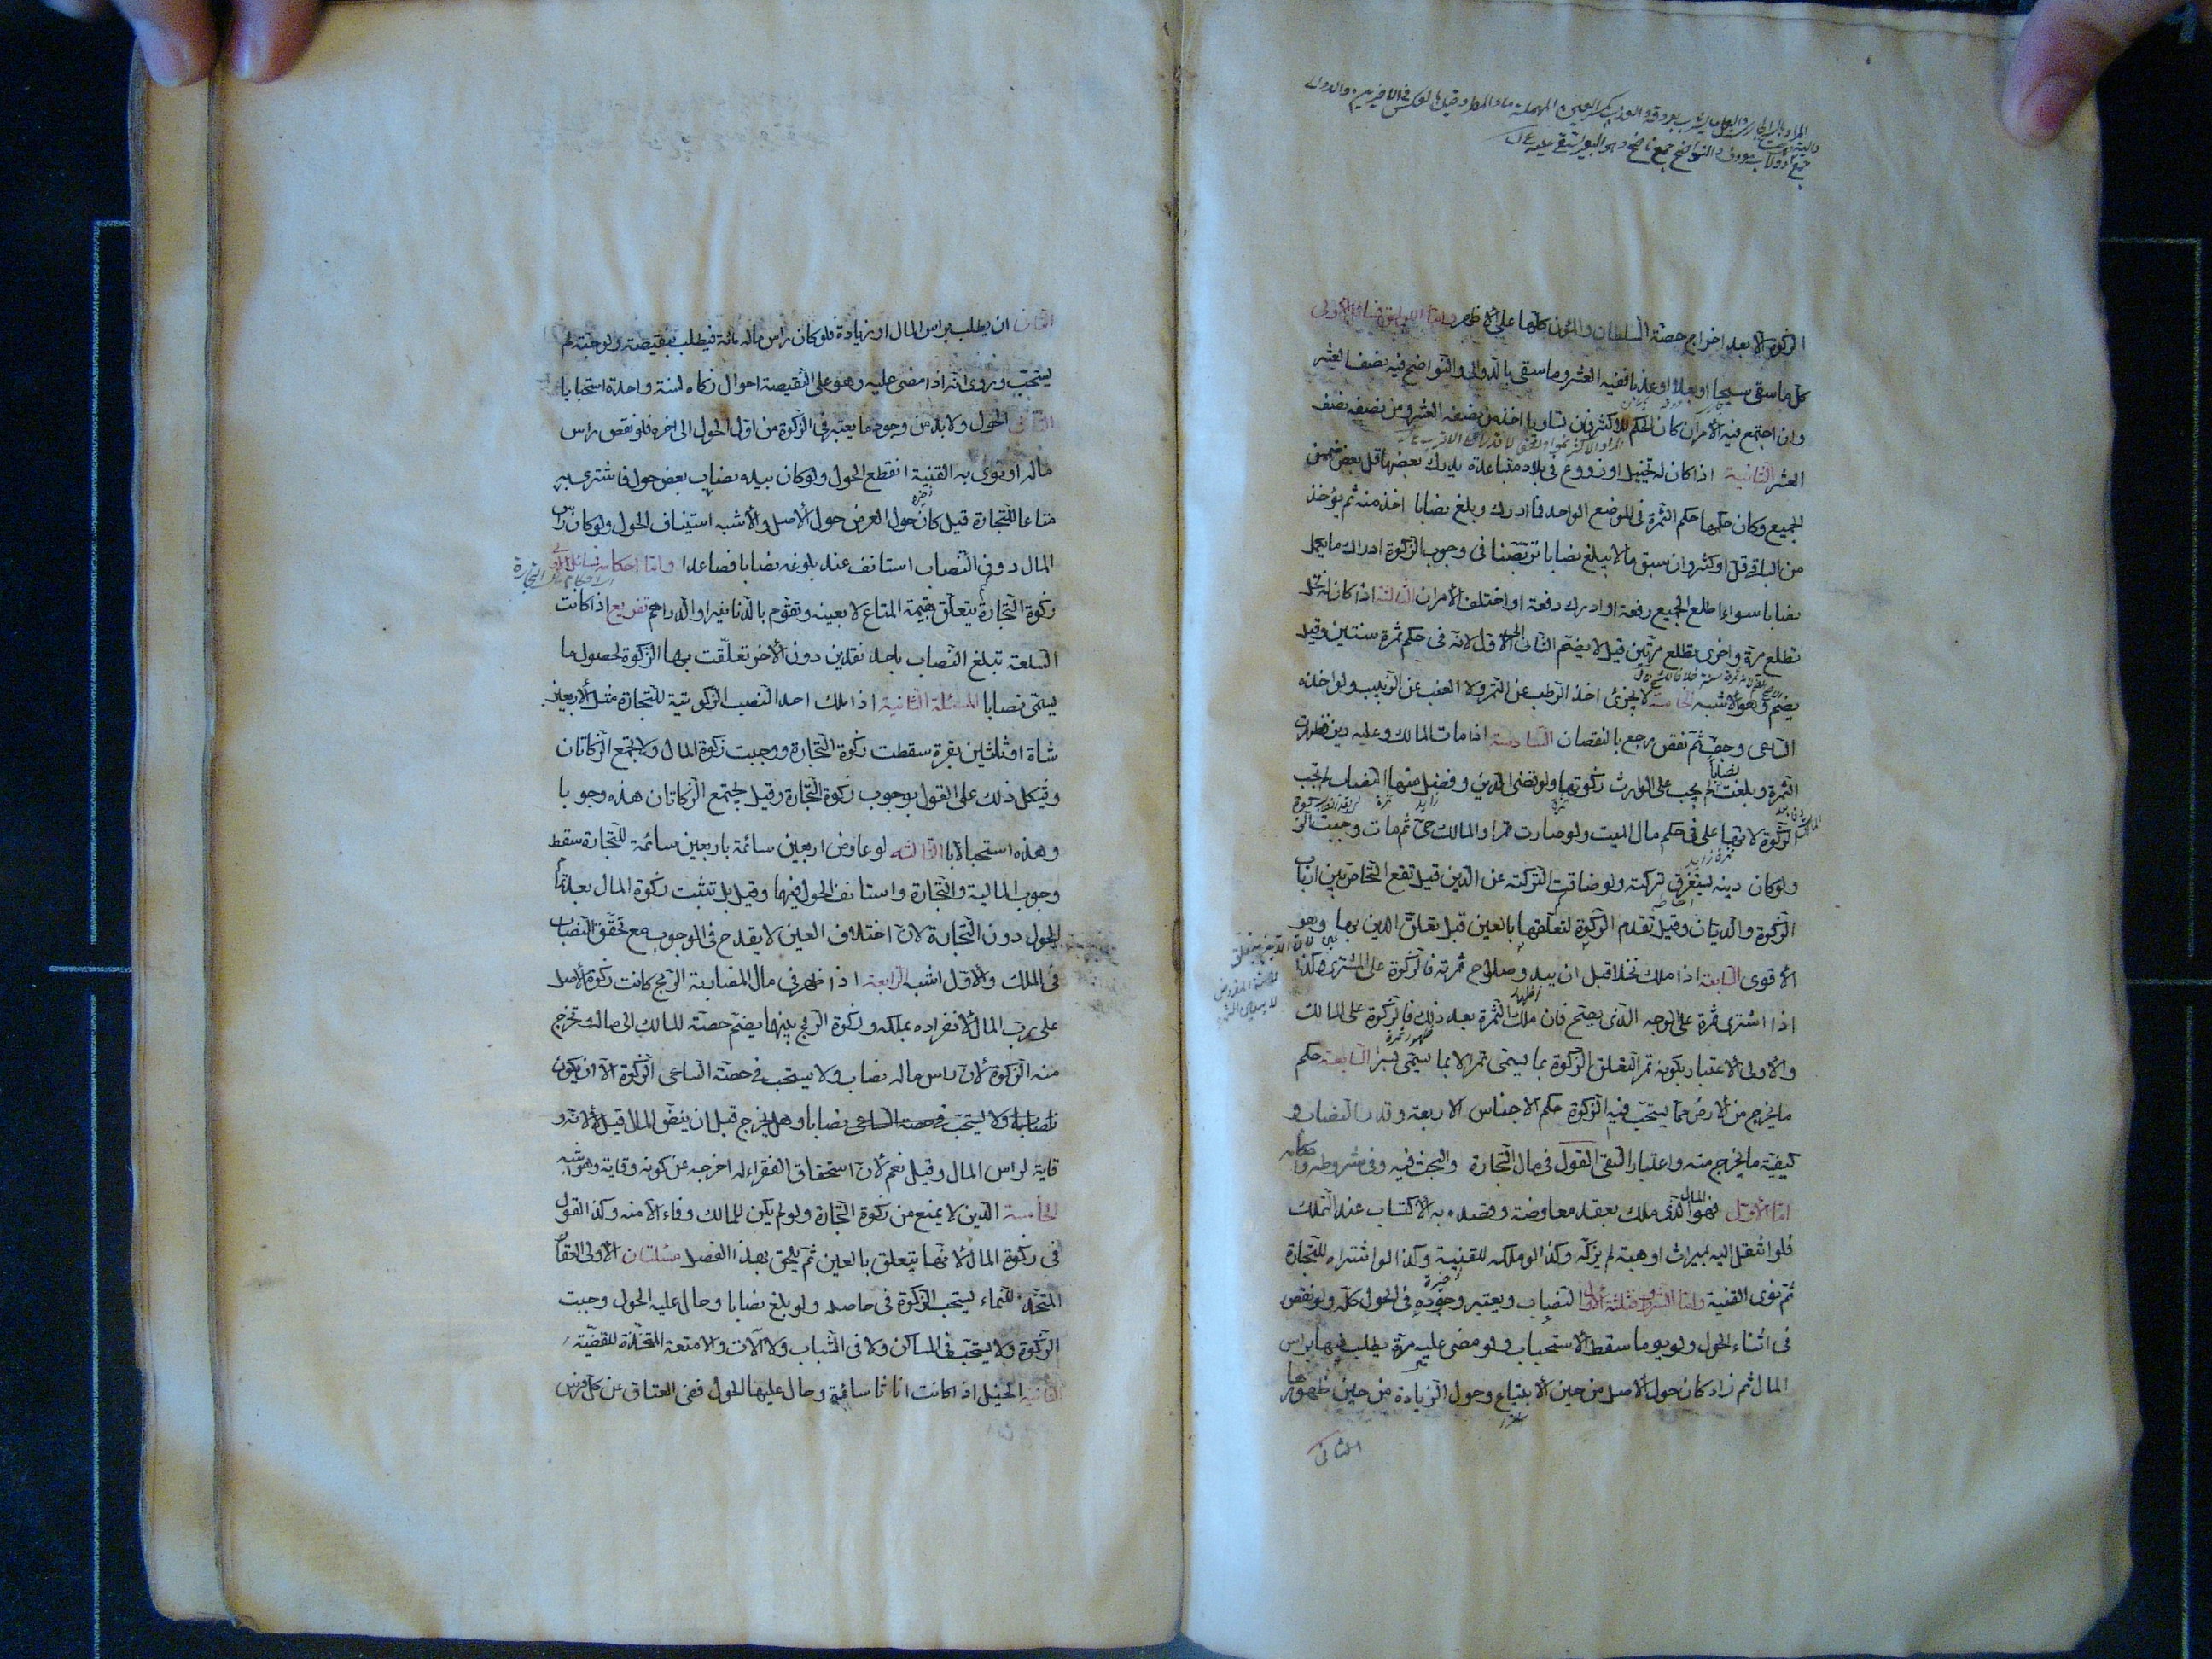 الزكوة الا بعد اخراج حصة السلطان والمؤن كلها على الاظهر واما اللواحق فمسائل الاولى
كل ما سقى سيحا او بعلا او عذيا ففيه العشر وما سقى بالدوالى والنواضح فيه نصف العشر
وان اجتمع فيه الأمران كان الحكم للاكثر فان تساويا اخذ من نصفه العشر ومن نصفه نصف
العشر الثانية اذا كان له نخيل او زروع فى بلاد متباعدة يدرك بعضها قبل بعض ضممنا
الجميع وكان حكمها حكم الثمرة فى الموضع الواحد فما ادرك وبلغ نصابا اخذ منه ثم يؤخذ
من الباقى قل او كثر وان سبق ما لا يبلغ نصابا تربصنا فى وجوب الزكوة ادراك ما يكمل
نصابا سواء اطلع الجميع دفعة او ادرك دفعة او اختلف الأمران الثالثة اذا كان له نخل
تطلع مرة واخرى تطلع مرتين قيل لا يضم الثانى الى الاول لانه فى حكم ثمرة سنتين وقيل
يضم وهو الاشبه لا يجزئ اخذ الرطب عن التمر ولا العنب عن الزبيب ولو اخذه
الساعى وجف ثم نقص رجع بالنقصان السادسة اذا مات المالك وعليه دين فظهرت
الثمرة وبلغت نصابا لم يجب على الوارث زكوتها ولو قضى الدين وفضل منها النصاب لم تجب
الزكوة لانها على فى حكم مال الميت ولو صارت تمرا والمالك حى ثم مات وجبت الزكوة
ولو كان دينه يستغرق تركته ولو ضاقت التركة عن الدين قيل تقع التحاص بين ارباب
الزكوة والديان وقيل تقدم الزكوة لتعلقها بالعين قبل تعلق الدين بها وهو
الأقوى السابعة اذا ملك نخلا قبل ان يبدو صلاح ثمرته فالزكوة على المشترى وكذا
اذا اشترى ثمرة على الوجه الذى يصح فان ملك الثمرة بعد ذلك فالزكوة على المالك
والأولى الاعتبار بكونه تمرا لتعلق الزكوة بما يسمى تمرا لا بما يسمى بسرا السابعة حكم
ما يخرج من الأرض مما يستحب فيه الزكوة حكم الاجناس الاربعة وقدر النصاب و
كيفية ما يخرج منه واعتبار السقى القول فى مال التجارة والبحث فيه وفى شروطه واحكامه
اما الأول فهو المال الذى ملك بعقد معاوضة وقصد به الاكتساب عند التملك
فلو انتقل اليه بميراث او هبة لم يزكه وكذا لو ملكه للقنية وكذا لو اشتراه للتجارة
ثم نوى القنية واما الشروط فثلثة الأول النصاب ويعتبر وجوده فى الحول كله ولو نقص
فى اثناء الحول ولو يوما سقط الاستحباب ولو مضى عليه مدة يطلب فيها براس
المال ثم زاد كان حول الأصل من حين الابتياع وحول الزيادة من حين ظهورها
الثانى
الثانى ان يطلب براس المال او زيادة فلو كان راس ماله مائة فيطلب بنقيصة ولو حبة لم
يستحب وروى انه اذا مضى عليه وهو على النقيصة احوال زكاه لسنة واحدة استحبابا
الثالث الحول ولا بد من وجود ما يعتبر فى الزكوة من اول الحول الى اخره فلو نقص راس
ماله او نوى به القنية انقطع الحول ولو كان بيده نصاب بعض حول فاشترى به
متاعا للتجارة قيل كان حول العرض حول الأصل والأشبه استيناف الحول ولو كان راس
المال دون النصاب استانف عند بلوغه نصابا فصاعدا واما احكامه فمسائل الاولى
زكوة التجارة يتعلق بقيمة المتاع لا بعينه وتقوم بالدنانير او الدراهم تفريع اذا كانت
السلعة تبلغ النصاب باحد نقدين دون الأخر تعلقت بها الزكوة لحصول ما
يسمى نصابا المسئلة الثانية اذا ملك احد النصب الزكوتية للتجارة مثل الأربعين
شاة او ثلثين بقرة سقطت زكوة التجارة ووجبت زكوة المال ولا تجتمع الزكاتان
ويشكل ذلك على القول بوجوب زكوة التجارة وقيل يجتمع الزكاتان هذه وجوبا
وهذه استحبابا الثالثة لو عاوض اربعين سائمة باربعين سائمة للتجارة سقط
وجوب المالية والتجارة واستانف الحول فيهما وقيل بل تثبت زكوة المال بعد تمام
الحول دون التجارة لان اختلاف العين لا يقدح فى الوجوب مع تحقق النصاب
فى الملك والأول اشبه الرابعة اذا ظهر فى مال المضاربة الربح كانت زكوة الأصل
على رب المال لانفراده بملكه وزكوة الربح بينهما يضم حصة المالك الى ماله وتخرج
منه الزكوة لان راس ماله نصاب ولا يستحب فى حصة الساعى الزكوة الا ان يكون
نصابا ولا يستحب فى حصة الساعى نصابا وهل يخرج قبل ان ينض المال قيل لا لانه و
قاية لراس المال وقيل نعم لان استحقاق الفقراء له اخرجه عن كونه وقاية وهو اشبه
الخامسة الدين لا يمنع من زكوة التجارة ولو لم يكن للمالك وفاء الا منه وكذا القول
فى زكوة المال لانها يتعلق بالعين ثم يلحق بهذا الفصل مسئلتان الأولى العقار
المتخذ للنماء يستحب الزكوة فى حاصله ولو بلغ نصابا وحال عليه الحول وجبت
الزكوة ولا يستحب فى المساكن ولا فى الثياب ولا الآلات والامتعة المتخذة للقنية
الثانية الخيل اذا كانت اناثا سائمة وحال عليها الحول ففى العتاق عن كل فرس